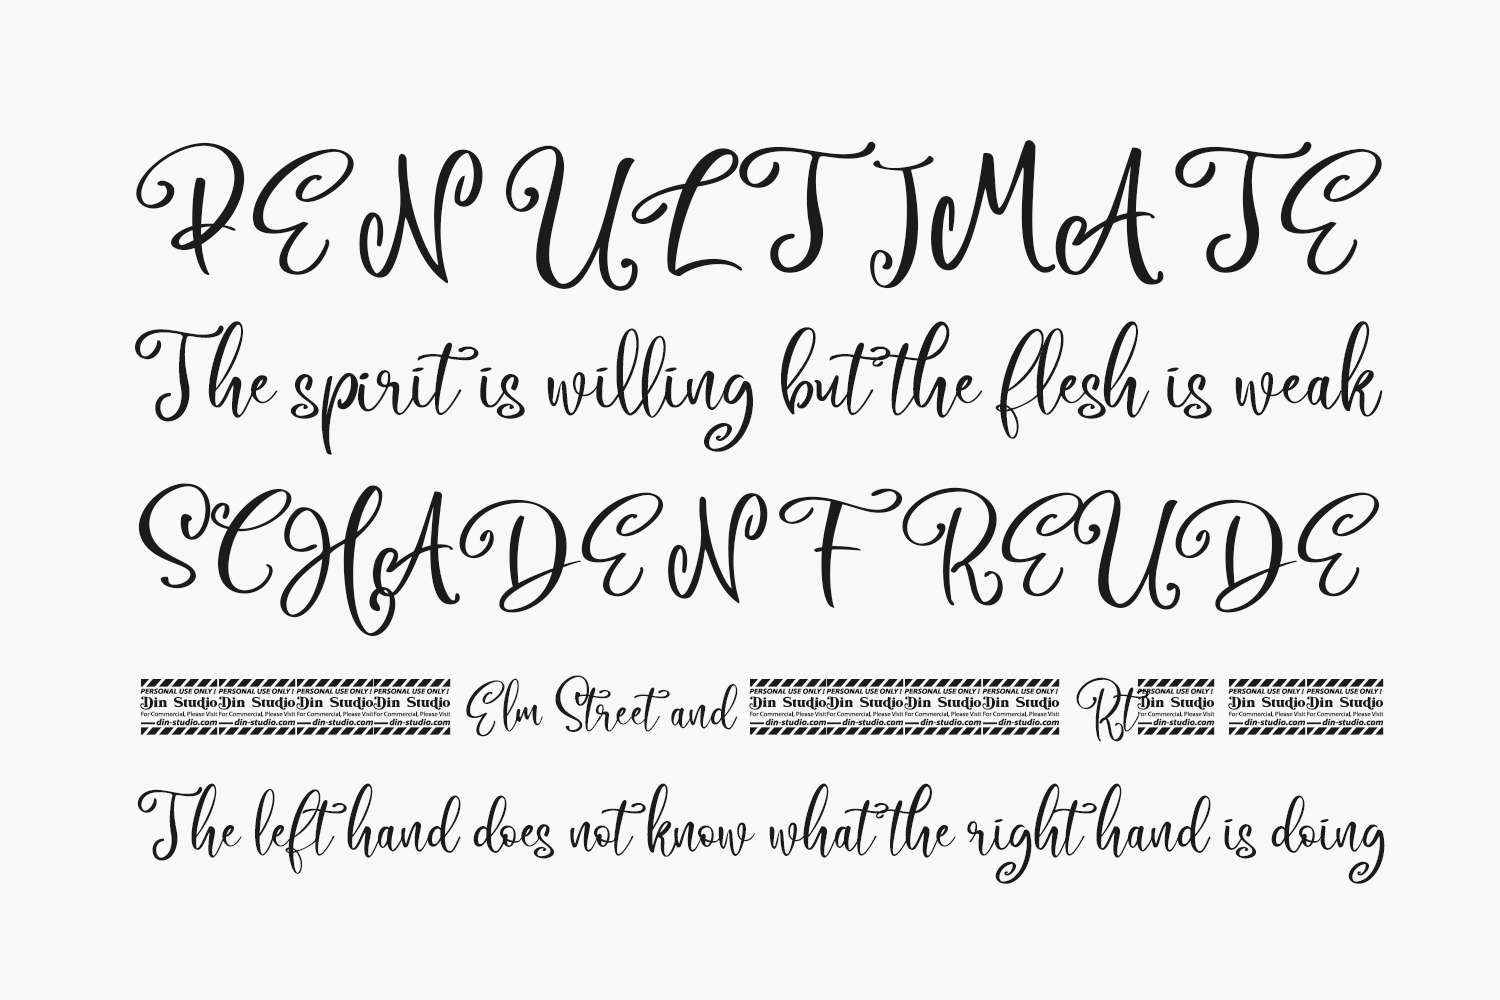 PENULTIMATE
The spirit is willing but the flesh is weak
SCHADENFREUDE
PERSONAL USE ONLY ! PERSONAL USE ONLY ! PERSONAL USE ONLY ! PERSONAL USE ONLY ! Elm Street and PERSONAL USE ONLY ! PERSONAL USE ONLY ! PERSONAL USE ONLY ! PERSONAL USE ONLY ! Rt PERSONAL USE ONLY ! PERSONAL USE ONLY ! PERSONAL USE ONLY !
Din Studio Din Studio Din Studio Din Studio Din Studio Din Studio Din Studio Din Studio Din Studio Din Studio Din Studio
For Commercial, Please Visit For Commercial, Please Visit For Commercial, Please Visit For Commercial, Please Visit For Commercial, Please Visit For Commercial, Please Visit For Commercial, Please Visit For Commercial, Please Visit For Commercial, Please Visit For Commercial, Please Visit For Commercial, Please Visit
din-studio.com din-studio.com din-studio.com din-studio.com din-studio.com din-studio.com din-studio.com din-studio.com din-studio.com din-studio.com din-studio.com
The left hand does not know what the right hand is doing